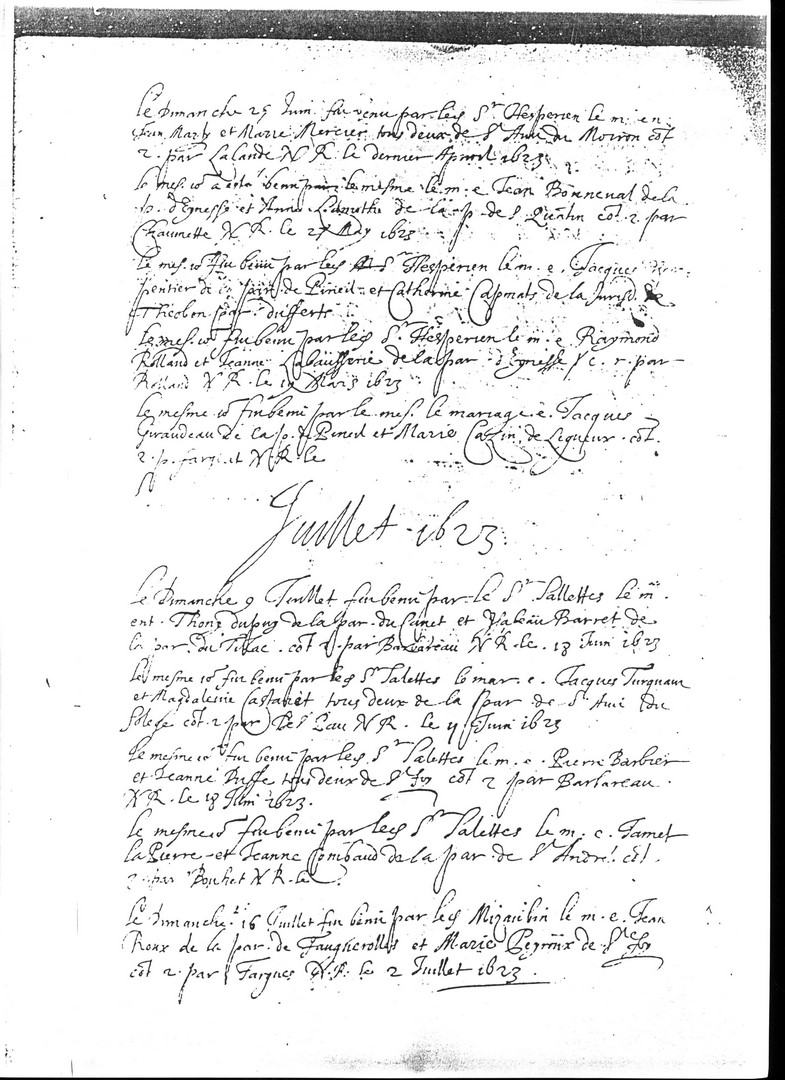 Le Dimanche 25 Juin fut benu par les Sr Hesperien le m. en
Jean Marty et Marie Mercier tous deux de St Avi du Moiron cot
2. par Lalande N R. le dernier Apvril 1623
le mes. io a esté beni par le mesme le m. e Jean Bonneval de la
p. d'Eynesse et Anne Lamothe de la p. de St Quentin cot. 2. par
Chaumette N R. le 27 May 1623
le mes. io fut benu par les Sr Hesperien le m. e. Jacques
pentier de la par. de Pineil et Catherine Capmats de la Jurisd. de
Theobon par dufferte
le mes. io fut benu par les Sr Hesperien le m. e Raymond
Rolland et Jeanne Labausserie de la par. d'Eynesse c. r. par
Rolland N R. le 19 Mars 1623
le mesme io fut beni par le mes. le mariage e. Jacques
Giraudeau de la p. de Pineil et Marie Cazin de Ligueux cot.
2. p. farg et N R. le
Juillet 1623
Le Dimanche 9 Juillet fut benu par le Sr Sallettes le m.
ent. Thony dupuy de la par. du Canet et Ysabeau Barret de
la par. du Tillac. cot 2. par Barbareau N R. le. 18 Juin 1623
le mesme io fut benu par les Sr Salettes le mar. e. Jacques Turquaux
et Magdaleine Castanet tous deux de la par de St Avi du
Solege cot 2 par De Leau N R. le 11 Juin 1623
le mesme io fut benu par les Sr Salettes le m. e. Pierre Barbier
et Jeanne Buffe tous deux de Ste foy cot 2 par Barbareau.
N R. le 18 Juin 1623.
le mesme io fut benu par les Sr Salettes le m. e. Jamet
la Pierre et Jeanne Combaud de la par. de St André cot.
2. par Bouhet N R. le
le Dimanche 16 Juillet fut benu par les Mizaubin le m. e. Jean
Roux de la par. de Fauguerolles et Marie Peyroux de Ste foy
cot 2. par Fargues N. R. le 2 Juillet 1623.